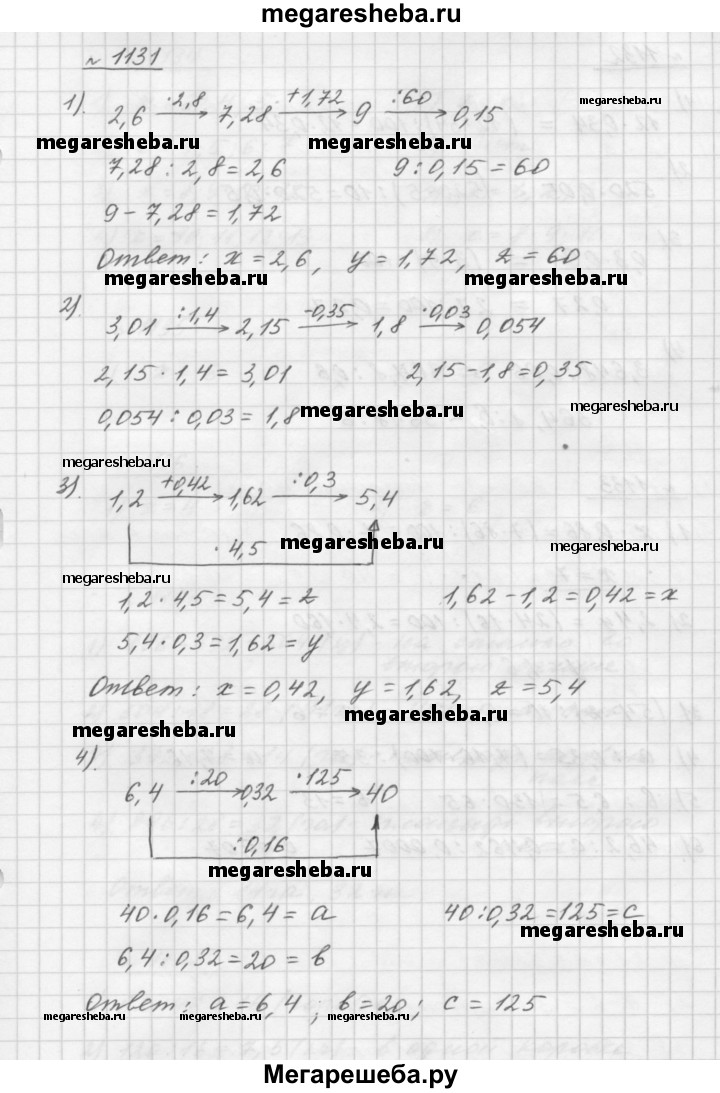 megaresheba.ru
№ 1131
1). 2,6 ·2,8 7,28 +1,72 9 :60 0,15
megaresheba.ru
megaresheba.ru megaresheba.ru
7,28 : 2,8 = 2,6 9 : 0,15 = 60
9 - 7,28 = 1,72
Ответ: x = 2,6, y = 1,72, z = 60
megaresheba.ru megaresheba.ru
2). 3,01 :1,4 2,15 -0,35 1,8 ·0,03 0,054
2,15 · 1,4 = 3,01 2,15 - 1,8 = 0,35
0,054 : 0,03 = 1,8
megaresheba.ru megaresheba.ru
megaresheba.ru
3). 1,2 +0,42 1,62 :0,3 5,4
· 4,5
megaresheba.ru megaresheba.ru
megaresheba.ru
1,2 · 4,5 = 5,4 = z 1,62 - 1,2 = 0,42 = x
5,4 · 0,3 = 1,62 = y
Ответ: x = 0,42, y = 1,62, z = 5,4
megaresheba.ru
megaresheba.ru
4).
6,4 :20 0,32 ·125 40
:0,16
megaresheba.ru
40 · 0,16 = 6,4 = a 40 : 0,32 = 125 = c
megaresheba.ru
6,4 : 0,32 = 20 = в
Ответ: a = 6,4 ; в = 20; c = 125
megaresheba.ru megaresheba.ru megaresheba.ru
Мегарешеба.ру